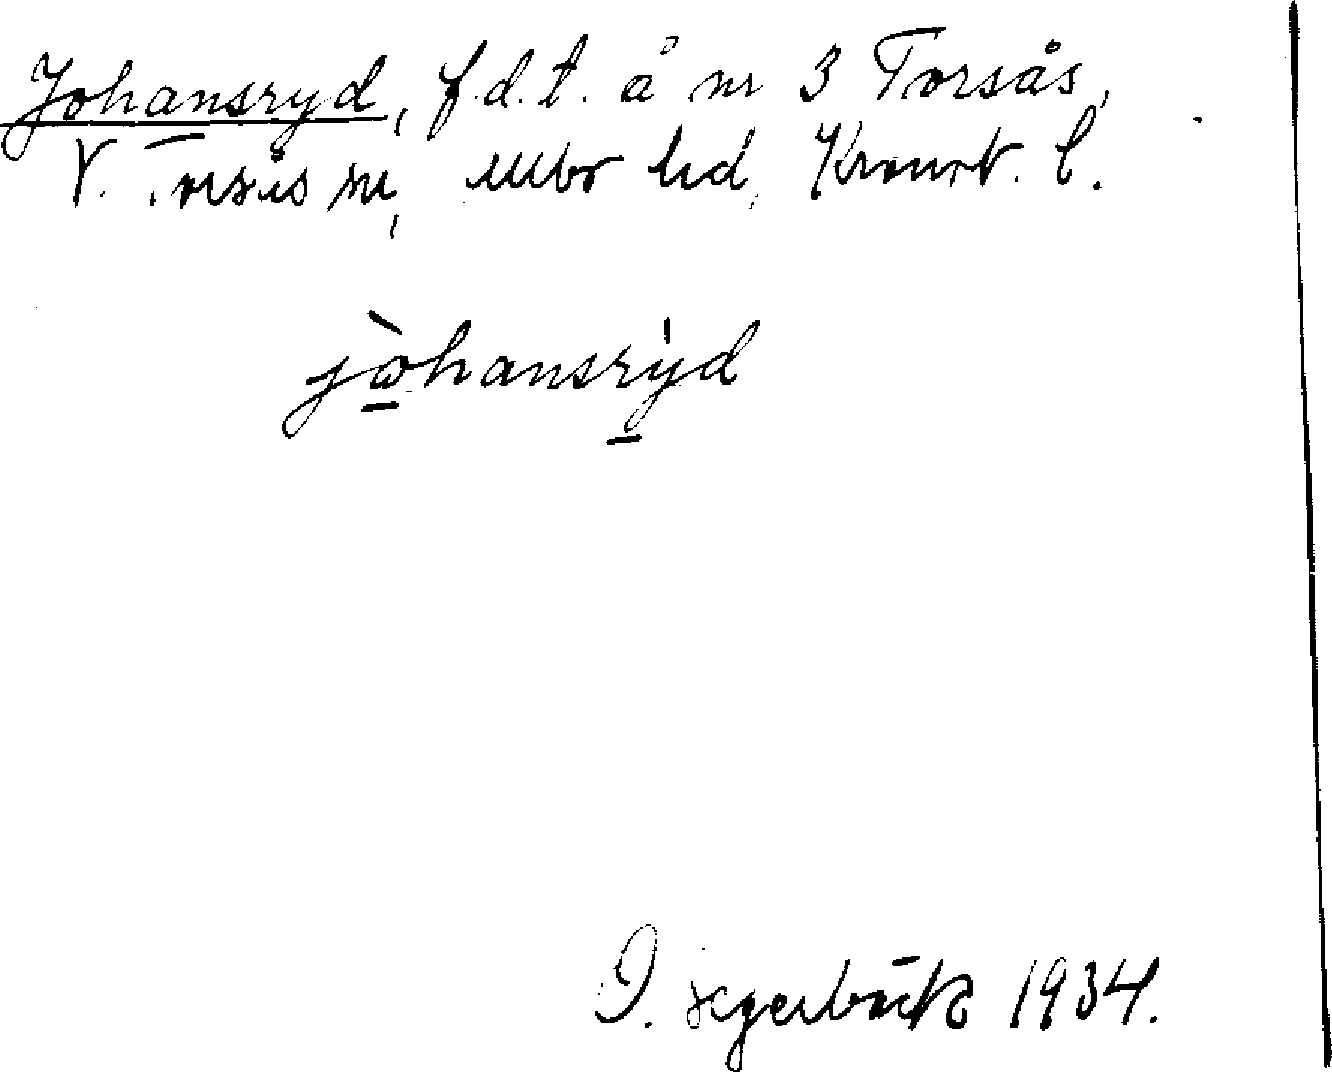 Johansryd, f.d.t. å nr 3 Torsås,
V. Torsås sn, Allbo hd, Kronob. l.
jòhansrýd
I. Segerbäck 1934.